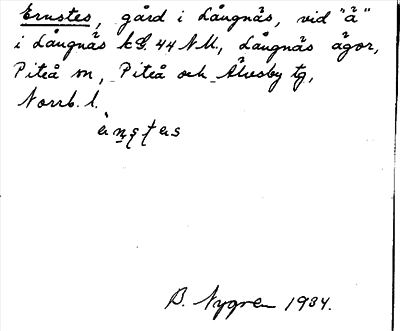 Ernstes, gård i Långnäs, vid "ä"
i Långnäs k S. 44 N M, Långnäs ägor,
Piteå sn, Piteå och Älvsby tg,
Norrb. l.
B. Nygren 1934.